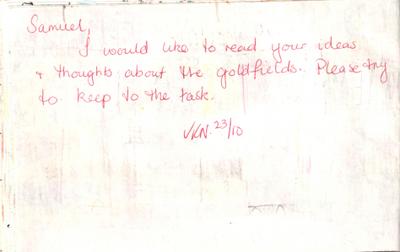 Samuel,
I would like to read your ideas
+ thoughts about the goldfields. Please try
to keep to the task.
VKN. 23/10